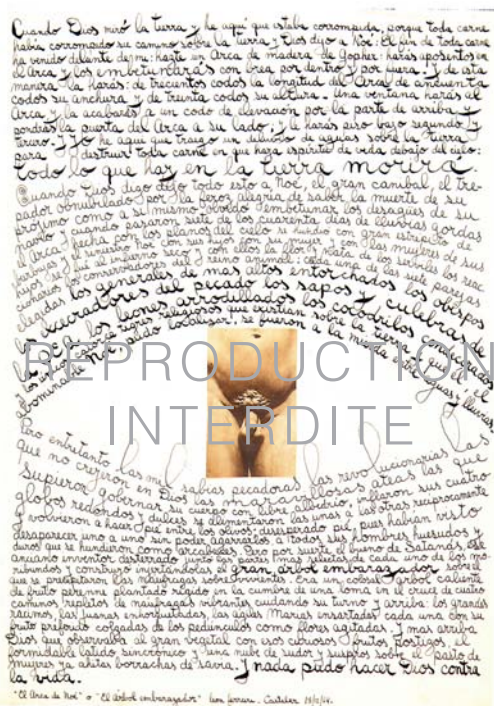 Cuando Dios miró la tierra y he aquí que estaba corrompida, porque toda carne
había corrompido su camino sobre la tierra y Dios dijo a Noé: El fin de toda carne
ha venido delante de mí: hazte un Arca de madera de Gopher: harás aposentos en
el Arca y los embetunarás con brea por dentro y por fuera. Y de esta
manera la harás: de trecientos codos la longitud del Arca de cincuenta
codos su anchura y de treinta codos su altura. Una ventana harás al
Arca y la acabarás a un codo de elevación por la parte de arriba y
pondrás la puerta del Arca a su lado. Y le harás piso bajo segundo y
tercero. Y Yo he aquí que traigo un diluvio de aguas sobre la tierra
para destruir toda carne en que haya espíritu de vida debajo del cielo:
todo lo que hay en la tierra morirá.
Cuando Dios digo dejo todo esto a Noé, el gran caníbal, el tre-
pador obnubilado por la feroz alegría de saber la muerte de su
prójimo como a sí mismo olvidó embetunar los desagües de su
navío y cuando pasaron siete de los cuarenta días de lluvias gordas
el Arca hecha por los planos del cielo se hundió con gran estrépito de
burbujas y el siniestro Noé con sus hijos con su mujer y con las mujeres de sus
hijos se fué al infierno seco y con ellos la flor y nata de los serviles los reac
cionarios los conservadores del reino animal: cada una de las siete parejas
elegidas los generales de mas altos entorchados los obispos
los execradores del pecado los sapos y culebras de
la peor los leones arrodillados los cocodrilos consagrados
los tigres religiosos que existían sobre la tierra y que el
abominable Noé, pudo localizar, se fueron a la mierda entre aguas y lluvias.
REPRODUCTION
INTERDITE
Pero entretanto las mil sabias pecadoras las revolucionarias las
que no creyeron en Dios las maravillosas ateas las que
supieron gobernar su cuerpo con libre albedrío inflaron sus cuatro
globos redondos y dulces se alimentaron las unas a las otras recíprocamente
y volvieron a hacer pie entre los olivos: desesperado pie, pues habían visto
desaparecer uno a uno sin poder agarrarlos a todos sus hombres huesudos y
duros que se hundieron como arcabuces. Pero por suerte el bueno de Satanás, ese
anciano inventor desterrado juntó las partes mas selectas de cada uno de los mo-
ribundos y construyó injertándolas el gran árbol embarazador sobre el
que se precipitaron las náufragas sobrevivientes. Era un colosal árbol caliente
de fruto perenne plantado rígido en la cumbre de una loma en el cruce de cuatro
caminos repletos de náufragas vibrantes cuidando su turno y arriba: los grandes
racimos, las Juanas enhorquilladas, las ágiles Marías ensartadas cada una con su
fruto predilecto colgadas de los pedúnculos como flores agitadas. Y mas arriba
Dios que observaba al gran vegetal con esos curiosos frutos postizos, el
formidable latido sincrónico y una nube de sudor y suspiros sobre el pasto de
mujeres ya ahítas borrachas de savia. Y nada pudo hacer Dios contra
la vida.
"El Arca de Noé" o "El árbol embarazador" leon ferrari. Castelar